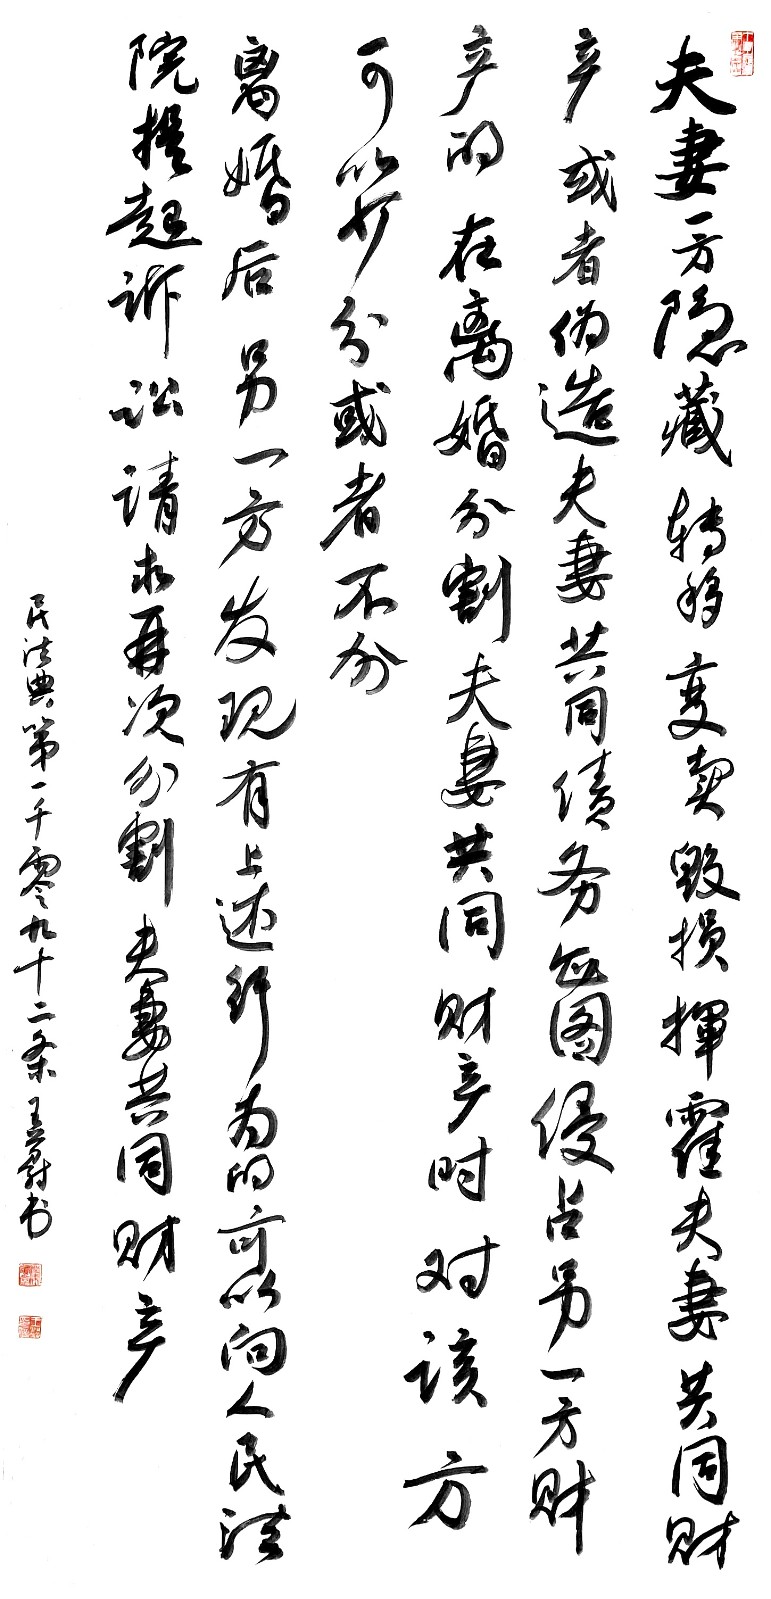 夫妻一方隐藏转移变卖毁损揮霍夫妻共同财
产或者伪造夫妻共同债务企图侵占另一方财
产的在离婚分割夫妻共同财产时对该方
可以少分或者不分
离婚后另一方发现有上述行为的可以向人民法
院提起诉讼请求再次分割夫妻共同财产
民法典第一千零九十二条 王书